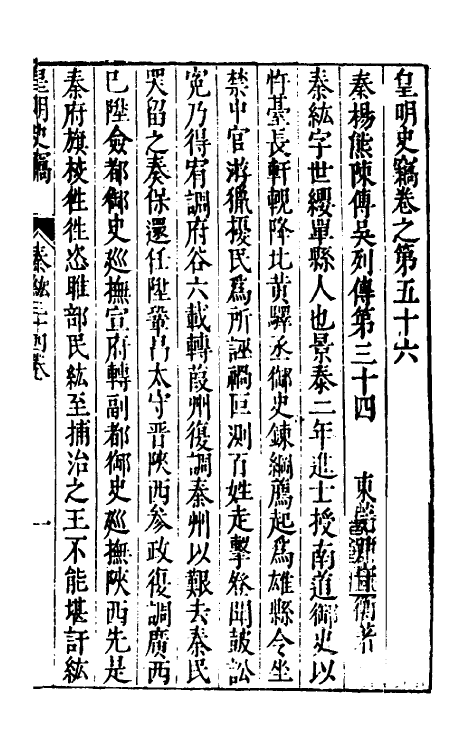 皇明史竊卷之第五十六
秦楊熊陳傅吳列傳第三十四　東莞尹守衡著
秦紘字世纓單縣人也景泰二年進士授南道御史以
忤臺長軒輗降北黃驛丞御史鍊綱薦起爲雄縣令坐
禁中官游獵擾民爲所誣禍叵測百姓走擊登聞鼓訟
寃乃得宥調府谷六載轉葭州復調秦州以艱去秦民
哭留之奏保還任陞鞏昌太守晉陝西參政復調廣西
已陞僉都御史廵撫宣府轉副都御史廵撫陝西先是
秦府旗校徃徃恣睢部民紘至捕治之王不能堪訐紘
皇明史竊
秦紘三十四卷
一